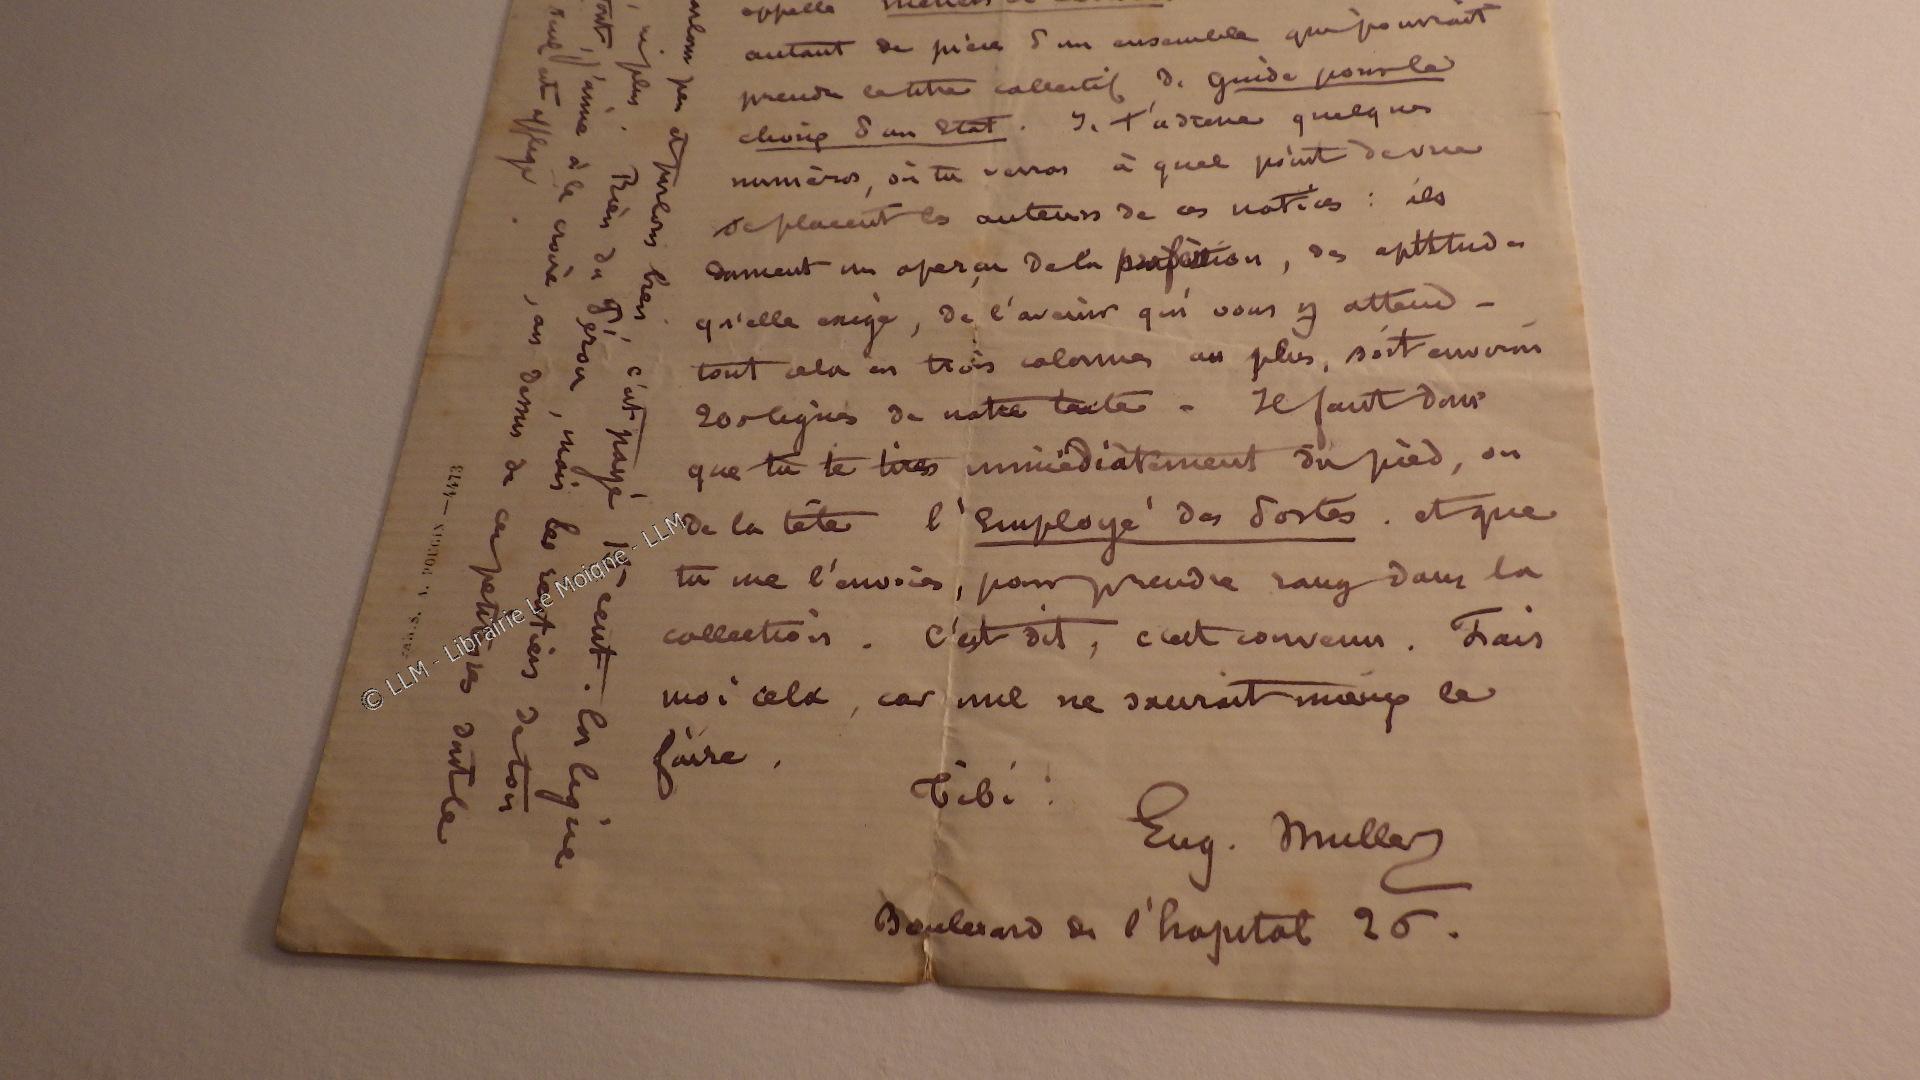 appelle
autant de pièces d'un ensemble qui pourrait
prendre le titre collectif de Guide pour le
choix d'un Etat. Je t'adresse quelques
numéros, où tu verras à quel point de vue
se placent les auteurs de ces notices : ils
donnent un aperçu de la profession, des aptitudes
qu'elle exige, de l'avenir qui vous y attend -
tout cela en trois colonnes au plus, soit environ
200 lignes de notre texte - Il faut donc
que tu te tires immédiatement du pied, ou
de la tête l'Employé des Postes. et que
tu me l'envoies, pour prendre rang dans la
collection. C'est dit, c'est convenu. Fais
moi cela, car nul ne saurait mieux le
faire.
Tibi !
Eug. Muller
Boulevard de l'hopital 26.
parlons peu et parlons bien
, ni plus. Rien du Gérou, c'est payé cent. la ligne
tout, j'aime à le croire, mais les restiers de ton
seul est afflige. au dessus de ces petites dont le
PARIS. A. POUGIN — 4473
© LLM - Librairie Le Moiane - LLM